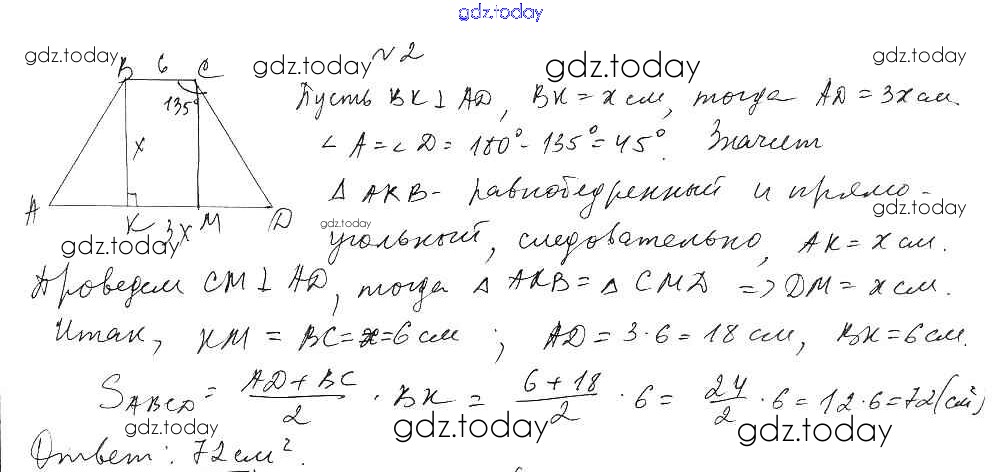 gdz.today
gdz.today gdz.today gdz.today gdz.today
№2
B 6 C
135°
x
A K 3x M D
Пусть BK ⊥ AD, BK = x см, тогда AD = 3x см.
∠A = ∠D = 180° - 135° = 45°. Значит
△ AKB - равнобедренный и прямо-
gdz.today gdz.today gdz.today
угольный, следовательно, AK = x см.
Проведем CM ⊥ AD, тогда △ AKB = △ CMD => DM = x см.
Итак, KM = BC = x = 6 см; AD = 3·6 = 18 см, BK = 6 см.
S ABCD = AD + BC / 2 · BK = 6 + 18 / 2 · 6 = 24 / 2 · 6 = 12 · 6 = 72 (см²)
gdz.today gdz.today gdz.today
Ответ: 72 см².